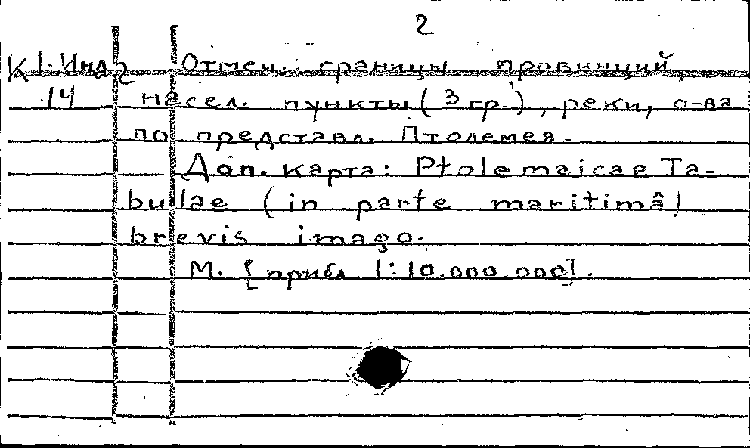 2
К 1-Инд2 Отмеч. границы провинций,
14 насел. пункты (3 гр.), реки, о-ва
по представл. Птолемея.
Доп. карта: Ptolemaicae Ta-
bulae (in parte maritimâ)
brevis imago.
М. [прибл 1:10.000.000].